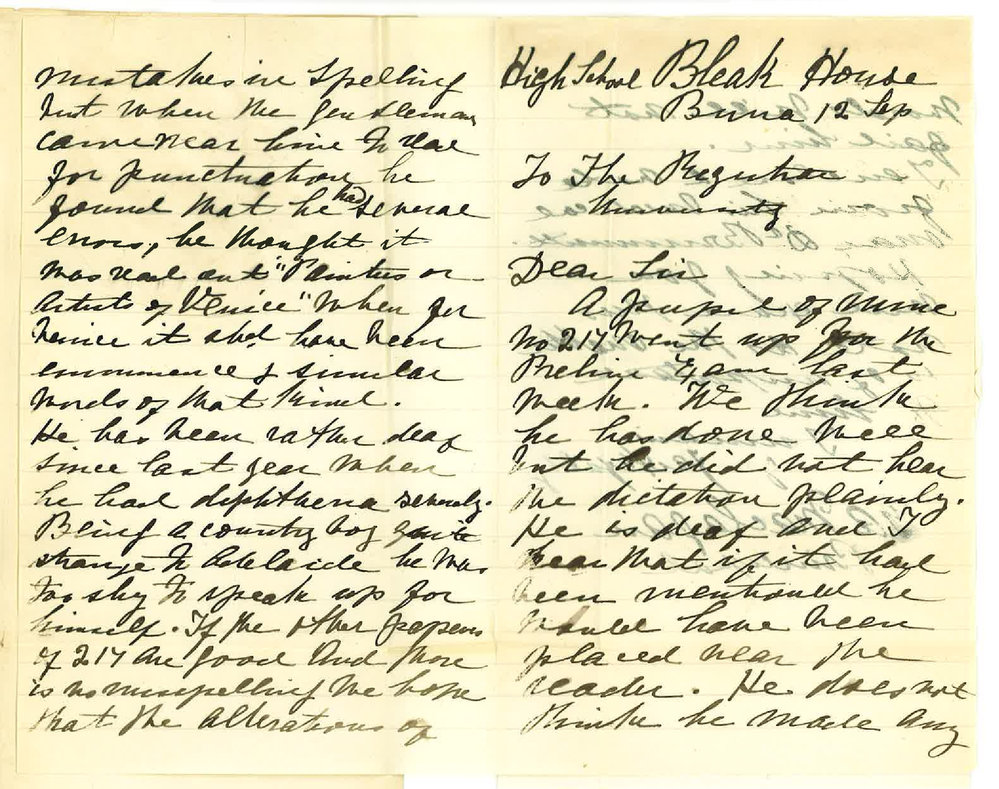 High School Bleak House
Burra 12 Sep
To The Registrar
University
Dear Sir
A pupil of mine
No 217 went up for the
Prelim Exam last
week. We think
he has done well
but he did not hear
the dictation plainly.
He is deaf and I
hear that if it had
been mentioned he
would have been
placed near the
reader. He does not
think he made any
mistakes in spelling
but when the gentleman
came near him to read
for punctuation he
found that he had several
errors, he thought it
was read out "Painters or
Artists of Venice" when for
Venice it shd have been
eminence & similar
words of that kind.
He has been rather deaf
since last year when
he had diphtheria severely.
Being a country boy quite
strange to Adelaide he was
too shy to speak up for
himself. If the other papers
of 217 are good and there
is no misspelling we hope
that the alterations of